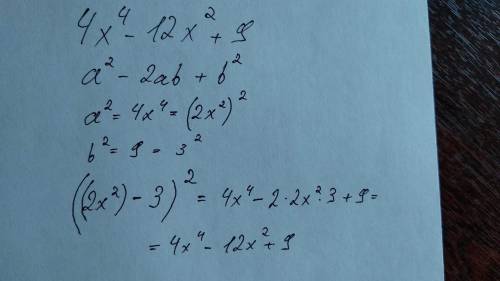 4x⁴ - 12x² + 9
a² - 2ab + b²
a² = 4x⁴ = (2x²)²
b² = 9 = 3²
((2x²) - 3)² = 4x⁴ - 2·2x²·3 + 9 =
= 4x⁴ - 12x² + 9